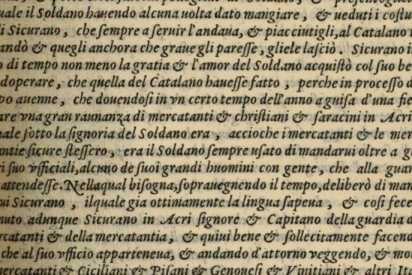 uale il Soldano hauendo alcuna uolta dato mangiare, & ueduti i costu
i Sicurano, che sempre a seruir l'andaua, & piacciutigli, al Catalano
andò & quegli anchora che graue gli paresse, gliele lasciò. Sicurano
o di tempo non meno la gratia & l'amor del Soldano acquistò col suo be
doperare, che quella del Catalano hauesse fatto, perche in processo d
o auenne, che douendosi in vn certo tempo dell'anno a guisa d'una fie
are vna gran raunanza di mercatanti & christiani & saracini in Acri
uale sotto la signoria del Soldano era, accioche i mercatanti & le mer
antie sicure stessero, era il Soldano sempre usato di mandarui oltre a g
ri suo vfficiali, alcuno de suoi grandi huomini con gente, che alla guar
attendesse. Nellaqual bisogna, soprauegnendo il tempo, deliberò di man
ui Sicurano, ilquale gia ottimamente la lingua sapeua, & cosi fece
nuto adunque Sicurano in Acri signore & Capitano della guardia d
catanti & della mercatantia, & quiui bene & sollecitamente facend
che al suo vfficio apparteneua, & andando d'attorno veggendo, & mo
ercatanti & Ciciliani & Pisani & Genouesi & Vinitiani & altri